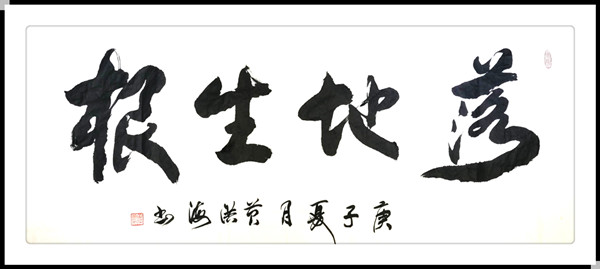 落地生根
庚子夏月黄洪海书